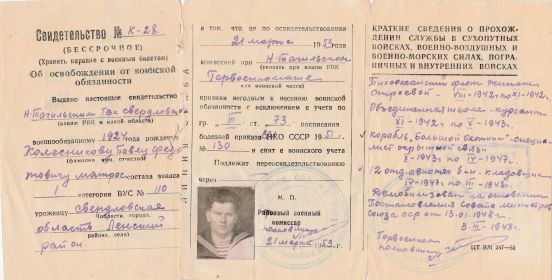 Свидетельство № К-28.
(БЕССРОЧНОЕ)
(Хранить наравне с военным билетом)
Об освобождении от воинской
обязанности
Выдано настоящее свидетельство
Н-Тагильским Гвк Свердловской
(каким РВК и какой области)
военнообязанному 1924 года рождения
Колесникову Павлу Федо
(фамилия, имя, отчество)
товичу матрос состава запаса
1 категории ВУС № 110
уроженцу Свердловская
(области, города,
область Ленский
района, села)
район
ЛИНИЯ ОТРЫВА
в том, что он по освидетельствовании
21 марта 1953 г.
комиссией при Н-Тагильском
(указать при каком РВК
Горвоенкомате
или воинской части)
признан негодным к несению воинской
обязанности с исключением с учета по
гр. III ст. 73 расписания
болезней приказа НКО СССР 1951 г.
№ 130 и снят с воинского учета
Подлежит переосвидетельствованию
через
М. П.
Районный военный
комиссар
21 марта 1953 г.
КРАТКИЕ СВЕДЕНИЯ О ПРОХОЖ-
ДЕНИИ СЛУЖБЫ В СУХОПУТНЫХ
ВОЙСКАХ, ВОЕННО-ВОЗДУШНЫХ И
ВОЕННО-МОРСКИХ СИЛАХ, ПОГРА-
НИЧНЫХ И ВНУТРЕННИХ ВОЙСКАХ
Тихоокеанский флот
строевой - VIII-1942г по XI-1942г.
Объединенная школа - курсант
XI-1942г по X-1943г.
Корабль "Большой охотник" - специа
лист связи
X-1943г. по IV-1947г.
12 отд. авиотех. б-н. кладовщик
IV-1947г по III-1948г.
Демобилизован на основании
Постановления Совета министров
Союза ССР от 13.01.1948г.
3-III-1948г.
Горвоенком
ЦТ ВМ 287—51